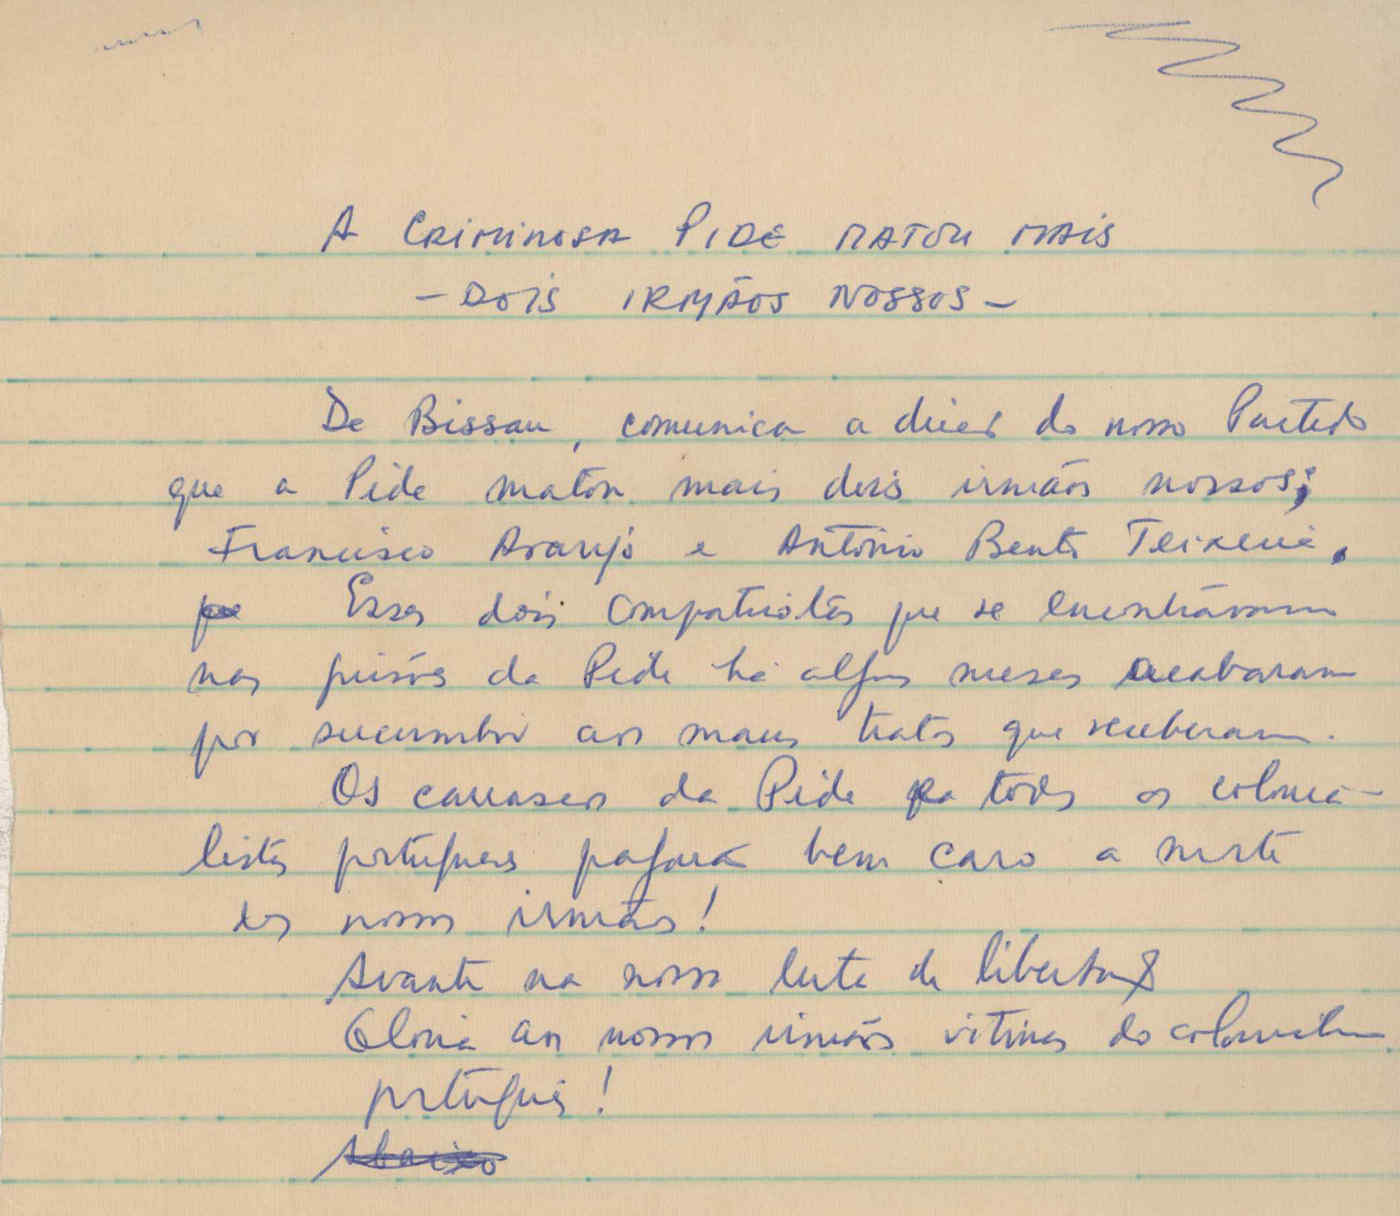 A CRIMINOSA PIDE MATOU MAIS
- DOIS IRMÃOS NOSSOS -
De Bissau, comunica a do nosso Partido
que a Pide matou mais dois irmãos nossos;
Francisco Araujo e António Bento Teixeira.
Esses dois compatriotas que se encontravam
nas prisões da Pide há alguns meses acabaram
por sucumbir aos maus tratos que receberam.
Os carrascos da Pide todos os colonia-
listas portugueses pagarão bem caro a morte
dos nossos irmãos!
Avante na nossa luta de libertação
Gloria aos nossos irmãos vitimas do colonialismo
português!
Abaixo